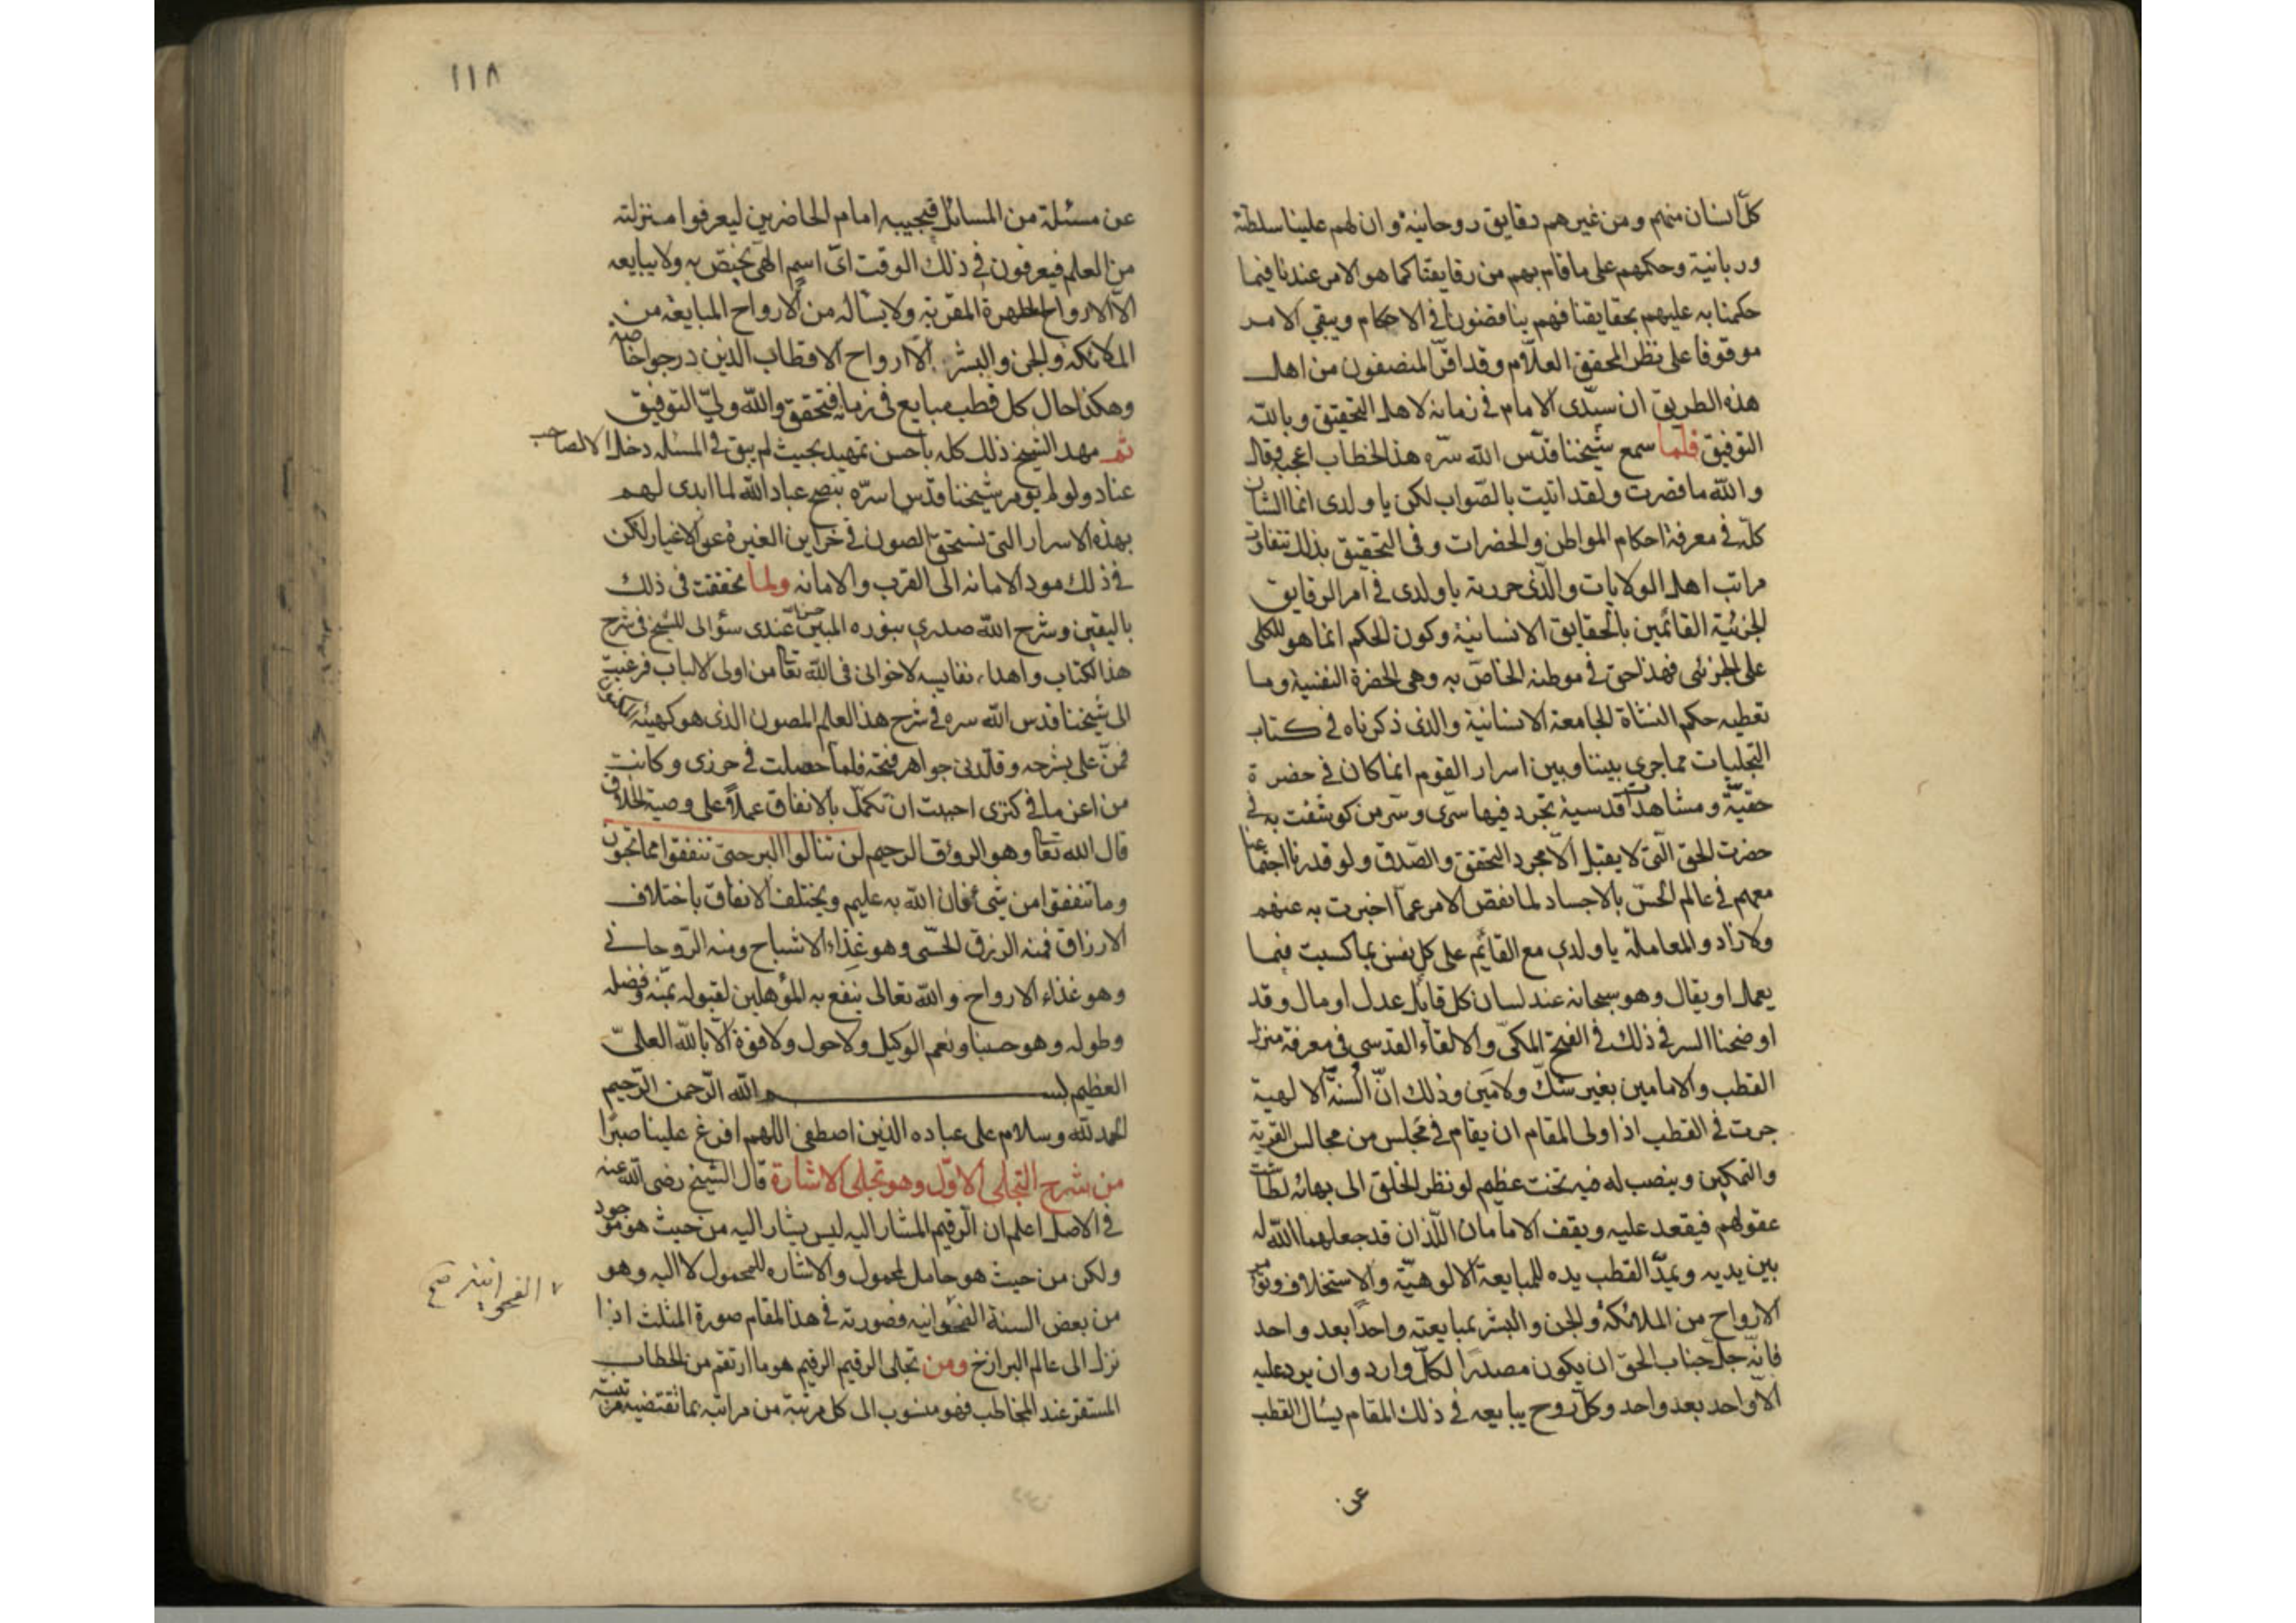 كلّ انسان منهم ومن غيرهم دقايق روحانية وان لهم علينا سلطنة
وربانية وحكمهم على ما قام بهم من رقايقنا كما هو الامر عندنا فيما
حكمنا به عليهم بحقايقنا فهم يناقضون في الاحكام ويبقي الامر
موقوفا على نظر المحقق العلّام وقد اقرّ المنصفون من اهل
هذه الطريق ان سيّدى الامام في زمانه لاهل التحقيق وبالله
التوفيق فلما سمع شيخنا قدّس الله سرّه هذا الخطاب اعجبه وقال
والله ما قصرت ولقد اتيت بالصّواب لكن يا ولدى انما الشان
كلّه في معرفة احكام المواطن والحضرات وفي التحقيق بذلك تتفاوت
مراتب اهل الولايات والّذى حررته يا ولدى في امر الرقايق
الجزئية القائمين بالحقايق الانسانية وكون الحكم انما هو للكلى
على الجزئى فهذا حق في موطنه الخاصّ به وهى الحضرة النفسية وما
تعطيه حكم النشاة الجامعة الانسانية والذى ذكرناه في كتاب
التجليات مما جرى بيننا وبين اسرار القوم انما كان في حضرة
حقيّة ومشاهدة قدسية تجرد فيها سرّى وسرّ من كوشفت به في
حضرت الحق الّتى لا يقبل الّا مجرد التحقق والصّدق ولو قدرنا اجتماعنا
معهم في عالم الحسّ بالاجساد لما نقص الامر عمّا اخبرت به عنهم
ولا زاد والمعاملة يا ولدى مع القائم على كل نفس بما كسبت فيما
يعمل او يقال وهو سبحانه عند لسان كل قائل عدل او مال وقد
اوضحنا السر في ذلك في الفتح المكىّ والالقاء القدسى في معرفة منزل
القطب والامامين بغير شكّ ولا مَين وذلك انّ السنّة الالهية
جرت في القطب اذا ولى المقام ان يقام في مجلس من مجالس القربة
والتمكين وينصب له فيه تخت عظيم لو نظر الخلق الى بهائه لطاشت
عقولهم فيقعد عليه ويقف الامامان اللّذان قد جعلهما الله له
بين يديه ويمدّ القطب يده للمبايعة الالوهيّة والاستخلاف وتؤمر
الارواح من الملائكة والجن والبشر بمبايعته واحدًا بعد واحد
فانّه جلّ جناب الحقّ ان يكون مصدرًا لكلّ وارد وان يرد عليه
الّا واحد بعد واحد وكلّ روح يبايعه في ذلك المقام يسال القطب
عن
١١٨
عن مسئلة من المسائل فيجيبه امام الحاضرين ليعرفوا منزلته
من العلم فيعرفون في ذلك الوقت اىّ اسم الهى يختصّ به ولا يبايعه
الّا الارواح المطهرة المقربة ولا يساله من الارواح المبايعة من
الملائكة والجن والبشر الّا ارواح الاقطاب الذين درجوا خاصة
وهكذا حال كل قطب مبايع في زمانه فتحقق والله ولىّ التوفيق
ثم مهد الشيخ ذلك كله باحسن تمهيد بحيث لم يبق في المسئلة دخلا الا لصاحب
عناد ولو لم يؤمر شيخنا قدّس اسرّه بنصح عباد الله لما ابدى لهم
بهذه الاسرار التى تستحقّ الصون في خزاين الغيرة عن الاغيار لكن
في ذلك مود الامانه الى القرب والامانه ولما تحققت في ذلك
باليقين وشرح الله صدرى بنوره المبين حسن عندى سؤالى للشيخ في شرح
هذا الكتاب واهداء نفايسه لاخوانى في الله تعا من اولى الالباب فرغبت
الى شيخنا قدس الله سره في شرح هذا العلم المصون الذى هو كهيئة المكنون
فمنّ على بشرحه وقلّدنى جواهر فتحه فلما حصلت في حرزى وكانت
من اعن ما في كنزى احببت ان تكمّل بالانفاق عملًا على وصية الخلاق
قال الله تعا وهو الرؤف الرحيم لن تنالوا البر حتىّ تنفقوا مما تحبون
وما تنفقوا من شئ فان الله به عليم ويختلف الانفاق باختلاف
الارزاق فمنه الرزق الحسّى وهو غذاء الاشباح ومنه الرّوحانى
وهو غذاء الارواح والله تعالى ينفع به المؤهلين لقبوله بمنّه وفضله
وطوله وهو حسبنا ونعم الوكيل ولا حول ولا قوة الّا بالله العلىّ
العظيم بسم الله الرّحمن الرّحيم
الحمد لله وسلام على عباده الذين اصطفى اللهم افرغ علينا صبرًا
من شرح التجلى الاوّل وهو تجلى الاشارة قال الشيخ رضى الله عنه
في الاصل اعلم ان الرقيم المشار اليه ليس يشار اليه من حيث هو موجود
ولكن من حيث هو حامل لمحمول والاشاره للمحمول لا اليه وهو
من بعض السنة الفهوانية فصورته في هذا المقام صورة المثلث اذا
نزل الى عالم البرازخ ومن تجلى الرقيم الرقيم هو ما ارتقم من الخطاب
المستقر عند المخاطب فهو منسوب الى كل مرتبة من مراتبه بما تقتضيه مرتبته